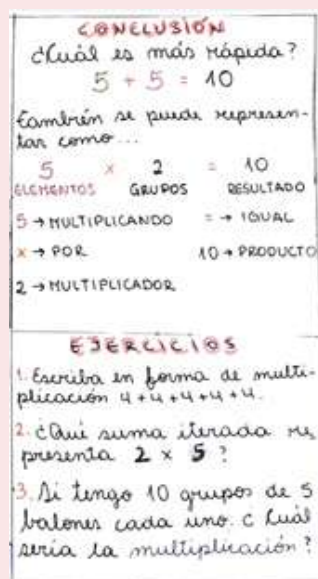 CONCLUSIÓN
¿Cuál es más rápida?
5 + 5 = 10
también se puede represen-
tar como...
5 x 2 = 10
ELEMENTOS GRUPOS RESULTADO
5 → MULTIPLICANDO = → IGUAL
x → POR 10 → PRODUCTO
2 → MULTIPLICADOR
EJERCICIOS
1. Escriba en forma de multi-
plicación 4+4+4+4+4.
2. ¿Qué suma iterada re
presenta 2 x 5?
3. Si tengo 10 grupos de 5
balones cada uno. ¿Cuál
sería la multiplicación?